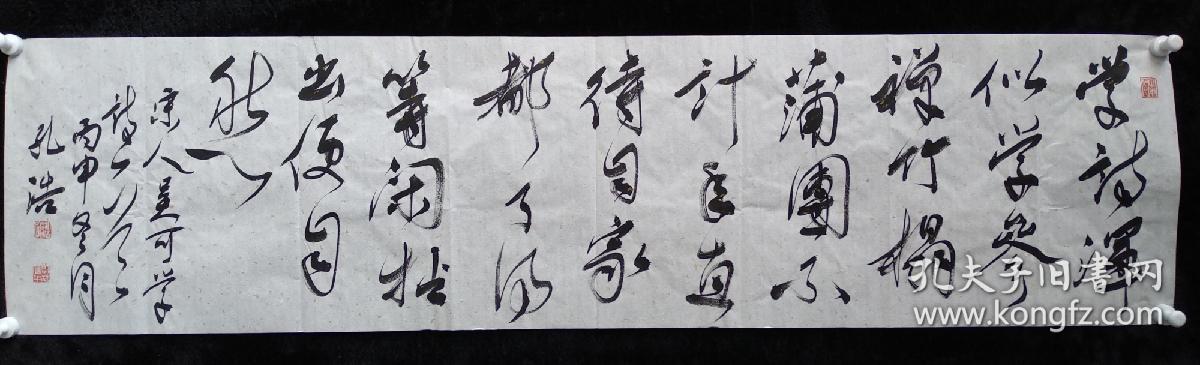 学诗渾
似学参
禅竹榻
蒲團不
计年直
待自家
都了得
等闲拈
出便自
然
宋人吴可学
诗一首
丙申冬月
孔浩
孔夫子旧書网
www.kongfz.com